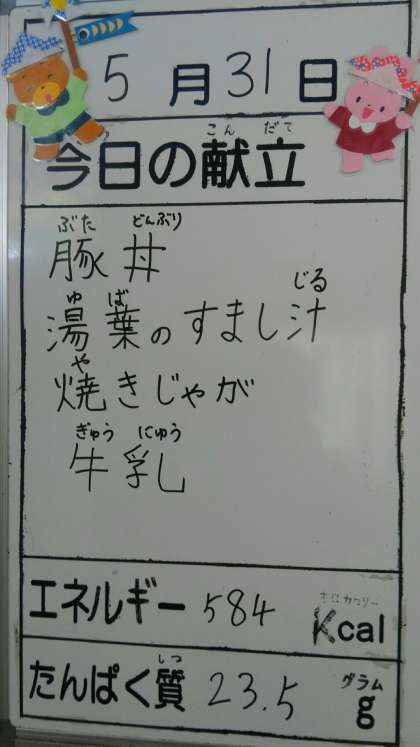 5月31日
こんだて
今日の献立
ぶた どんぶり
豚丼
ゆば じる
湯葉のすまし汁
や
焼きじゃが
ぎゅう にゅう
牛乳
エネルギー 584 キロカロリー Kcal
しつ グラム
たんぱく質 23.5 g